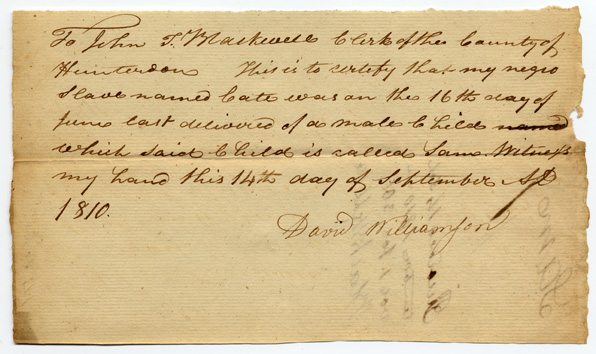 To John T. Blackwell Clerk of the County of
Hunterdon This is to certify that my negro
Slave named Cate was on the 16th day of
June last delivered of a male Child named
which said Child is called Sam. Witness
my hand this 14th day of September AD
1810.
David Williamson